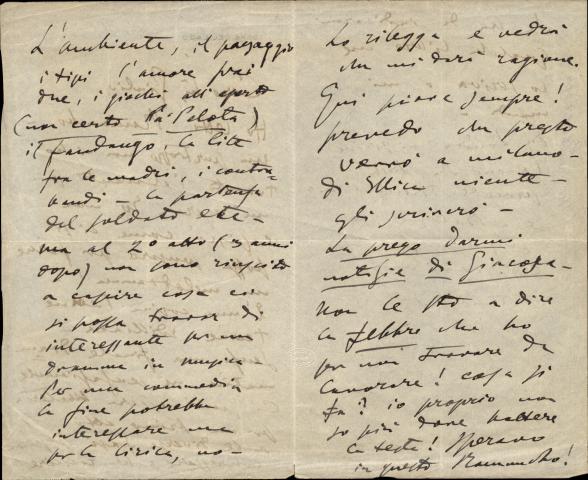 L'ambiente, il paesaggio
i tipi l'amore frai
due, i giochi all'aperto
(non certo la Pelota)
il fandango, la lite
fra le madri, i contrab-
bandi - la partenza
del soldato etc -
ma al 2º atto (3 anni
dopo) non sono riuscito
a capire cosa ci
si possa trovar di
interessante per un
dramma in musica -
Per una commedia
la fine potrebbe
interessare ma
per la lirica, no -
Lo rilegga e vedrà
che mi darà ragione.
Qui piove sempre!
prevedo che presto
verrò a Milano -
di Illica niente -
gli scriverò -
La prego darmi
notizie di Giacosa -
Non le sto a dire
la febbre che ho
per voi trovare da
lavorare! cosa si
fa? io proprio non
so più dove battere
la testa! Speravo
in questo Ramuncho!